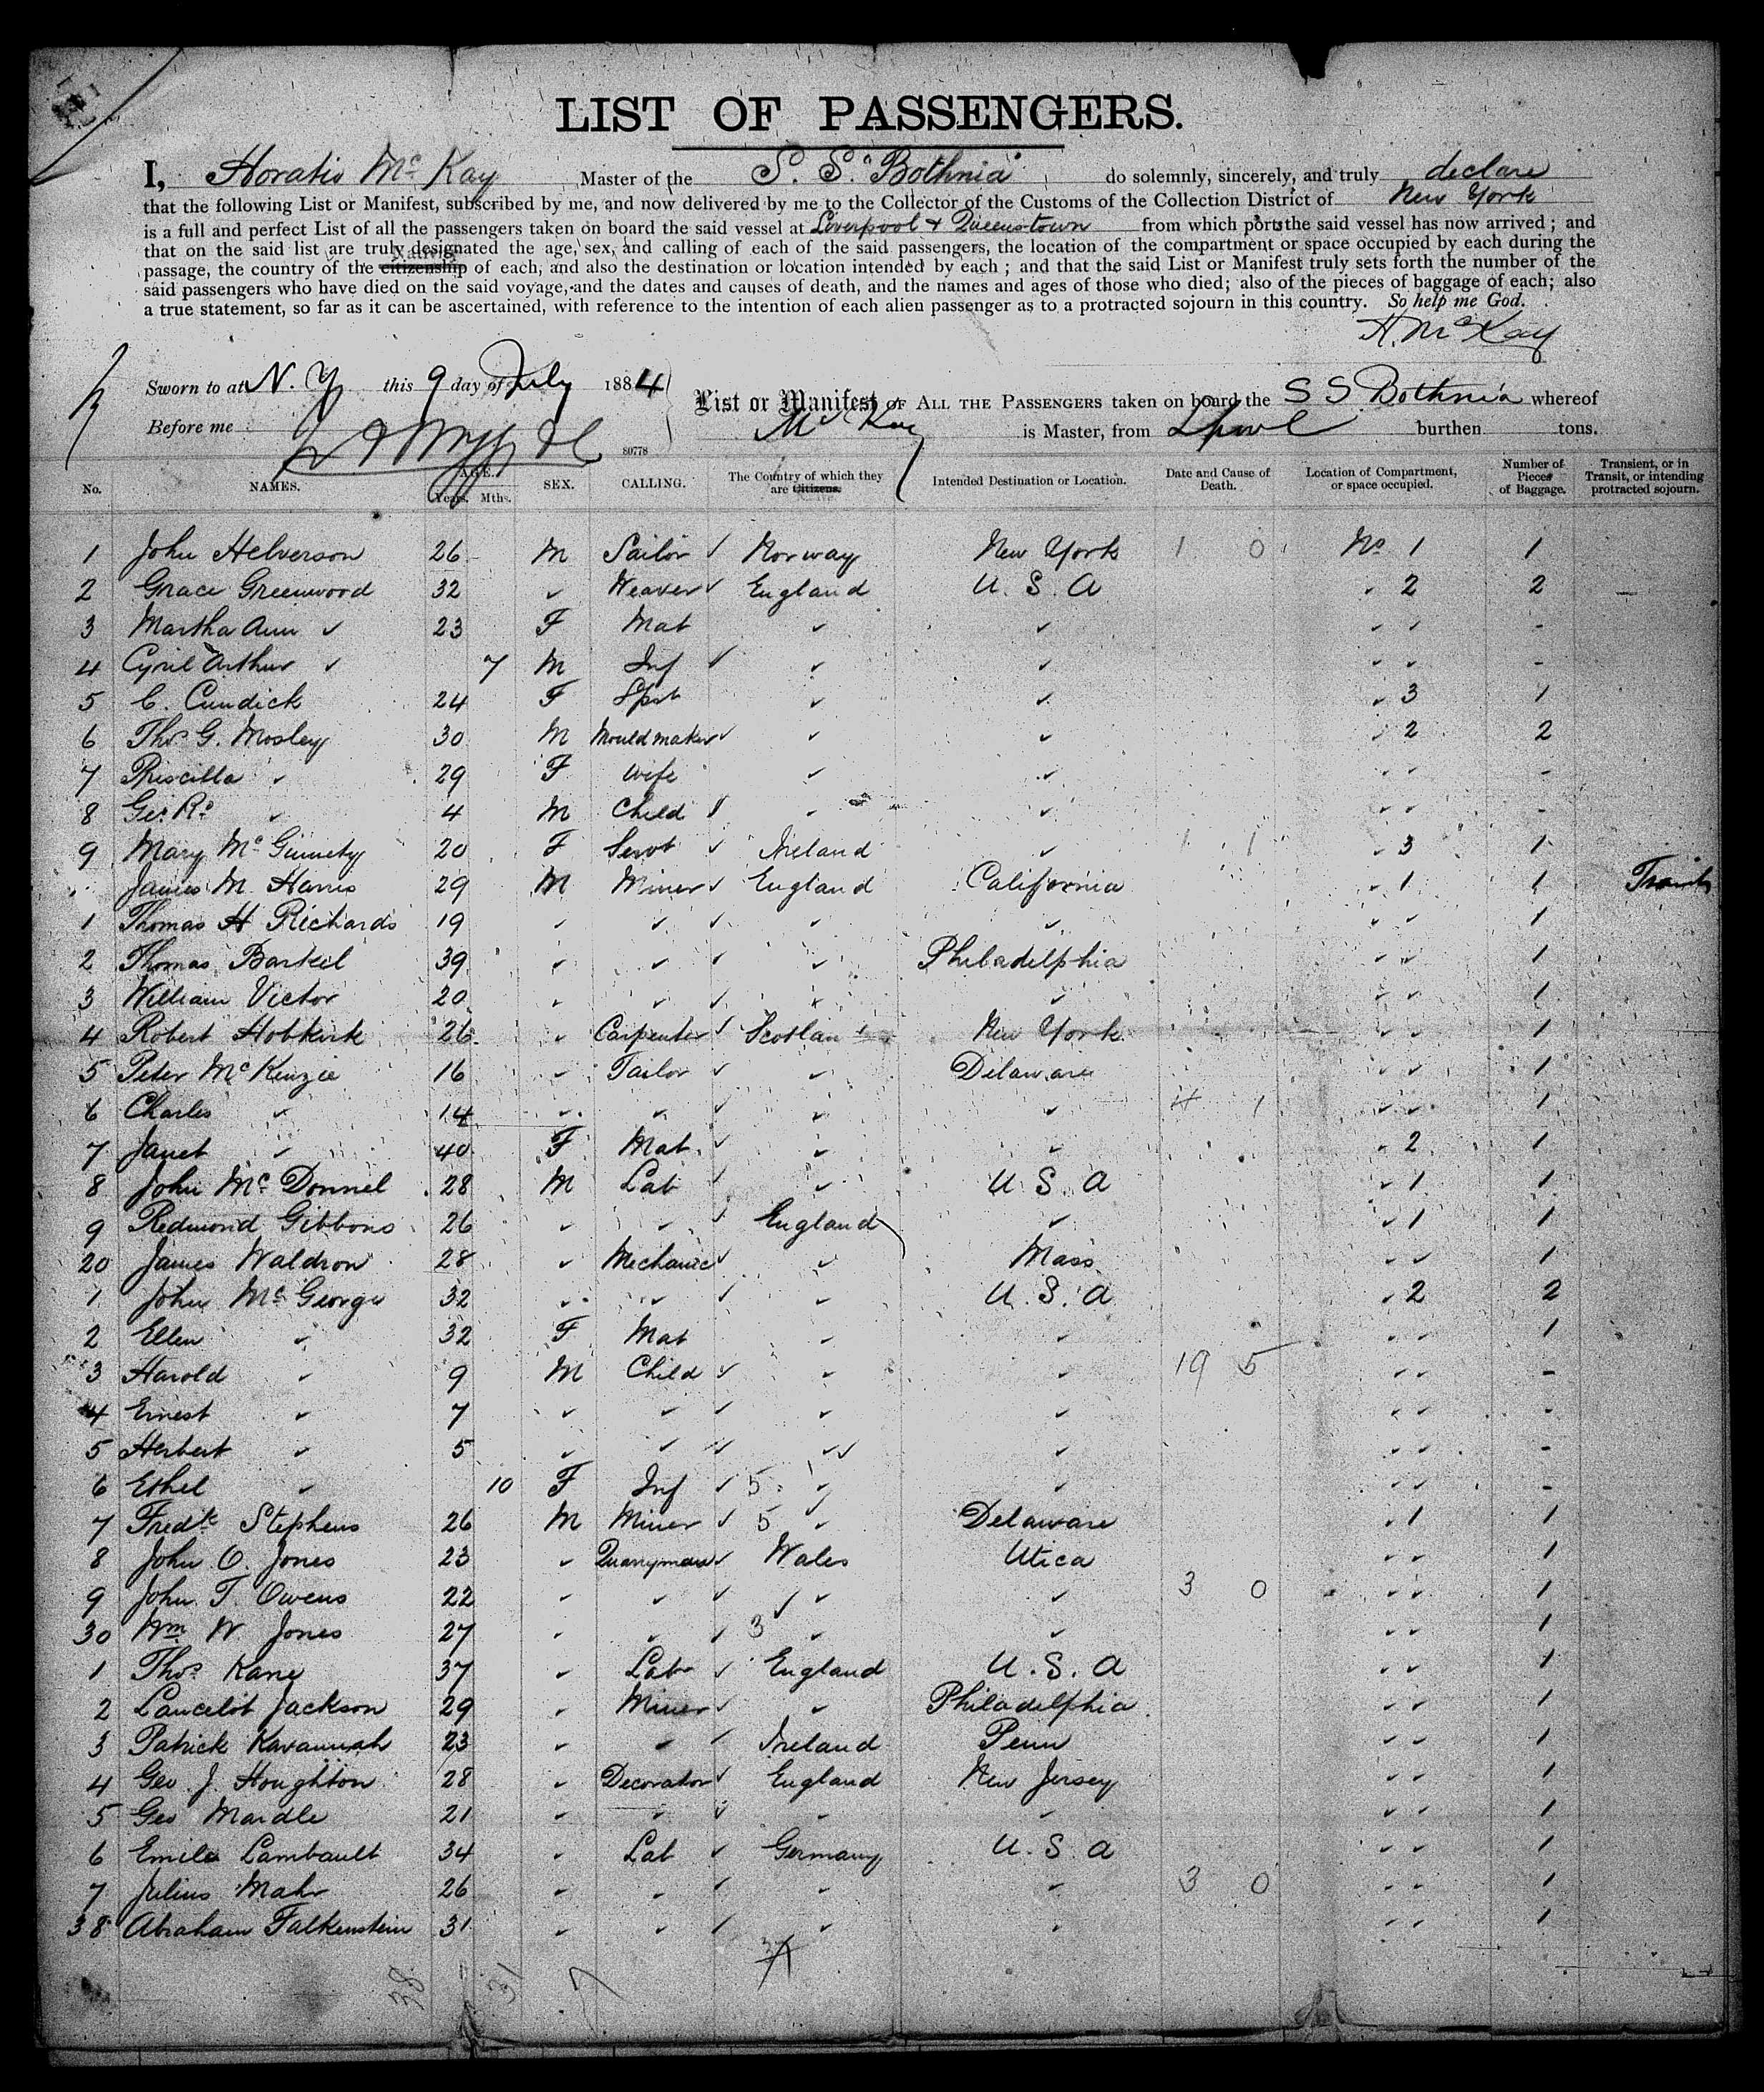 LIST OF PASSENGERS.
I, Horatio McKay Master of the S. S. "Bothnia" do solemnly, sincerely, and truly declare
that the following List or Manifest, subscribed by me, and now delivered by me to the Collector of the Customs of the Collection District of New York
is a full and perfect List of all the passengers taken on board the said vessel at Liverpool & Queenstown from which ports the said vessel has now arrived; and
that on the said list are truly designated the age, sex, and calling of each of the said passengers, the location of the compartment or space occupied by each during the
passage, the country of the citizenship of each, and also the destination or location intended by each; and that the said List or Manifest truly sets forth the number of the
said passengers who have died on the said voyage, and the dates and causes of death, and the names and ages of those who died; also of the pieces of baggage of each; also
a true statement, so far as it can be ascertained, with reference to the intention of each alien passenger as to a protracted sojourn in this country. So help me God.
H. McKay
Sworn to at N. Y. this 9 day of July 1884
List or Manifest OF ALL THE PASSENGERS taken on board the S S Bothnia whereof
Before me 80778 McKay is Master, from Lpool burthen tons.
No. NAMES. AGE. Years. Mths. SEX. CALLING. The Country of which they are Citizens. Intended Destination or Location. Date and Cause of Death. Location of Compartment, or space occupied. Number of Pieces of Baggage. Transient, or in Transit, or intending protracted sojourn.
1 John Helverson 26 M Sailor ✓ Norway New York 1 0 No 1 1
2 Grace Greenwood 32 " Weaver ✓ England U. S. A " 2 2
3 Martha Ann " 23 F Mat " " " " -
4 Cyril Arthur " 7 M Inf ✓ " " " " -
5 C. Cundick 24 F Spst " " " 3 1
6 Thos G. Mosley 30 M Mouldmaker ✓ " " " 2 2
7 Priscilla " 29 F Wife " " " " -
8 Geo Rd " 4 M Child ✓ " " " " -
9 Mary McGinnety 20 F Servt ✓ Ireland " 1 1 " 3 1
James M. Harris 29 M Miner ✓ England California " 1 1 Transit
1 Thomas H Richards 19 " " ✓ " " " " 1
2 Thomas Barkel 39 " " ✓ " Philadelphia " " 1
3 William Victor 20 " " ✓ " " " " 1
4 Robert Hobkirk 26 " Carpenter ✓ Scotland New York " " 1
5 Peter McKenzie 16 " Tailor ✓ " Delaware " " 1
6 Charles " 14 " " ✓ " " 4 1 " " 1
7 Janet " 40 F Mat ✓ " " " 2 1
8 John McDonnel 28 M Lab ✓ " U S A " 1 1
9 Redmond Gibbons 26 " " ✓ England " " 1 1
20 James Waldron 28 " Mechanic ✓ " Mass " " 1
1 John McGeorge 32 " " ✓ " U. S. A " 2 2
2 Ellen " 32 F Mat " " " " 1
3 Harold " 9 M Child ✓ " " 19 5 " " -
4 Ernest " 7 " " ✓ " " " " -
5 Herbert " 5 " " ✓ " " " " -
6 Ethel " 10 F Inf ✓ 5 " " " " -
7 Fredk Stephens 26 M Miner ✓ 5 " Delaware " 1 1
8 John O. Jones 23 " Quarryman ✓ Wales Utica " " 1
9 John T. Owens 22 " " ✓ " " 3 0 " " 1
30 Wm W. Jones 27 " " ✓ 3 " " " " 1
1 Thos Kane 37 " Lab ✓ England U. S. A " " 1
2 Lancelot Jackson 29 " Miner ✓ " Philadelphia " " 1
3 Patrick Kavannah 23 " " ✓ Ireland Penn " " 1
4 Geo. J. Houghton 28 " Decorator ✓ England New Jersey " " 1
5 Geo Mardle 21 " " ✓ " " " " 1
6 Emile Lambault 34 " Lab ✓ Germany U. S. A " " 1
7 Julius Mahr 26 " " ✓ " " 3 0 " " 1
38 Abraham Falkenstein 31 " " ✓ " " " " 1
38 31 7